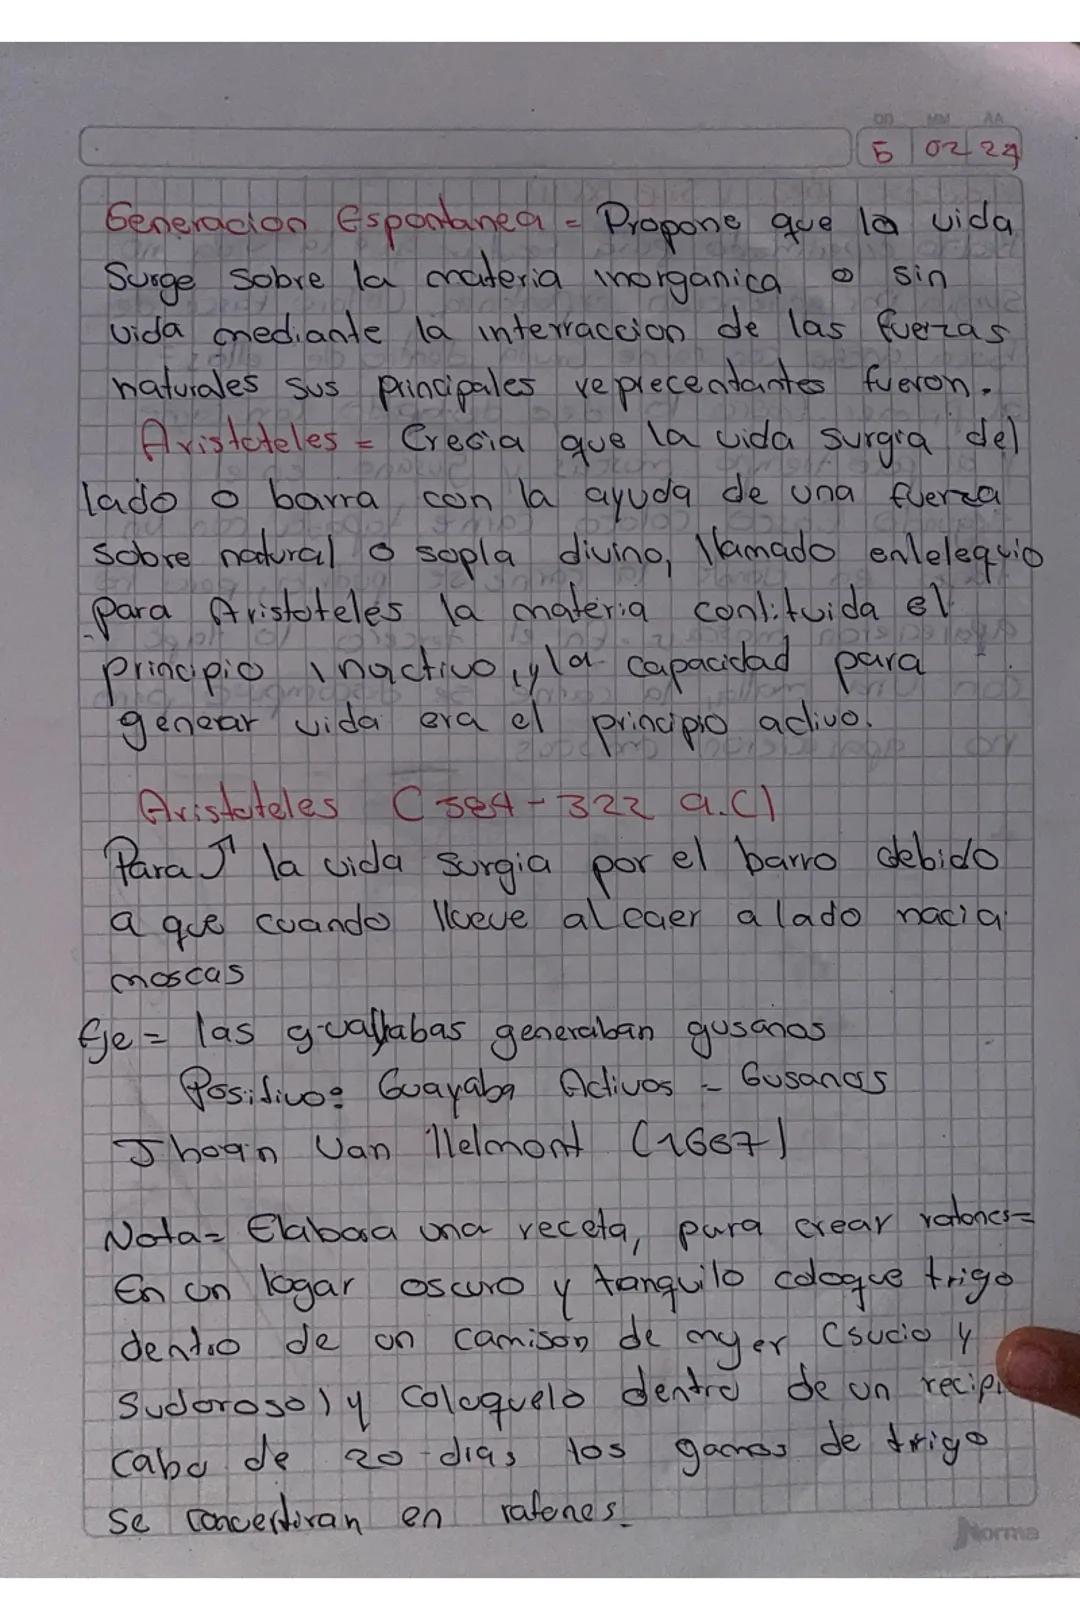 DD MM AA
5 02 24
Generacion Espontanea = Propone que la vida
Surge Sobre la materia inorganica o sin
vida mediante la interraccion de las fuerzas
naturales sus principales reprecentantes fueron.
Aristoteles = Crecia que la vida surgia del
lado o barra con la ayuda de una fuerza
sobre natural o sopla divino, llamado enlelequio
para Aristoteles la materia contituida el
principio inactivo, y la capacidad para
generar vida era el principio activo.
Aristoteles (384-322 a.C)
Para la vida surgia por el barro debido
a que cuando llueve al caer a lado nacia
moscas
Eje = las guallabas generaban gusanos
Positivo: Guayaba Activos - Gusanos
Jhoan Van Helmont (1667)
Nota= Elabora una receta, para crear ratones=
En un logar oscuro y tanquilo coloque trigo
dentro de un camison de myer (sucio y
Sudoroso) y coloquelo dentro de un recipi
cabo de 20 dias los de trigo
se ratones.
Norma